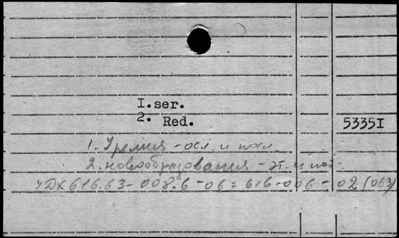 I. ser.
2. Red.
5335I
1. Уремия - осл. и посл.
2. новообразования - эт. и пат.
УДК 616.63-008.6-06:616-006-02 (063)